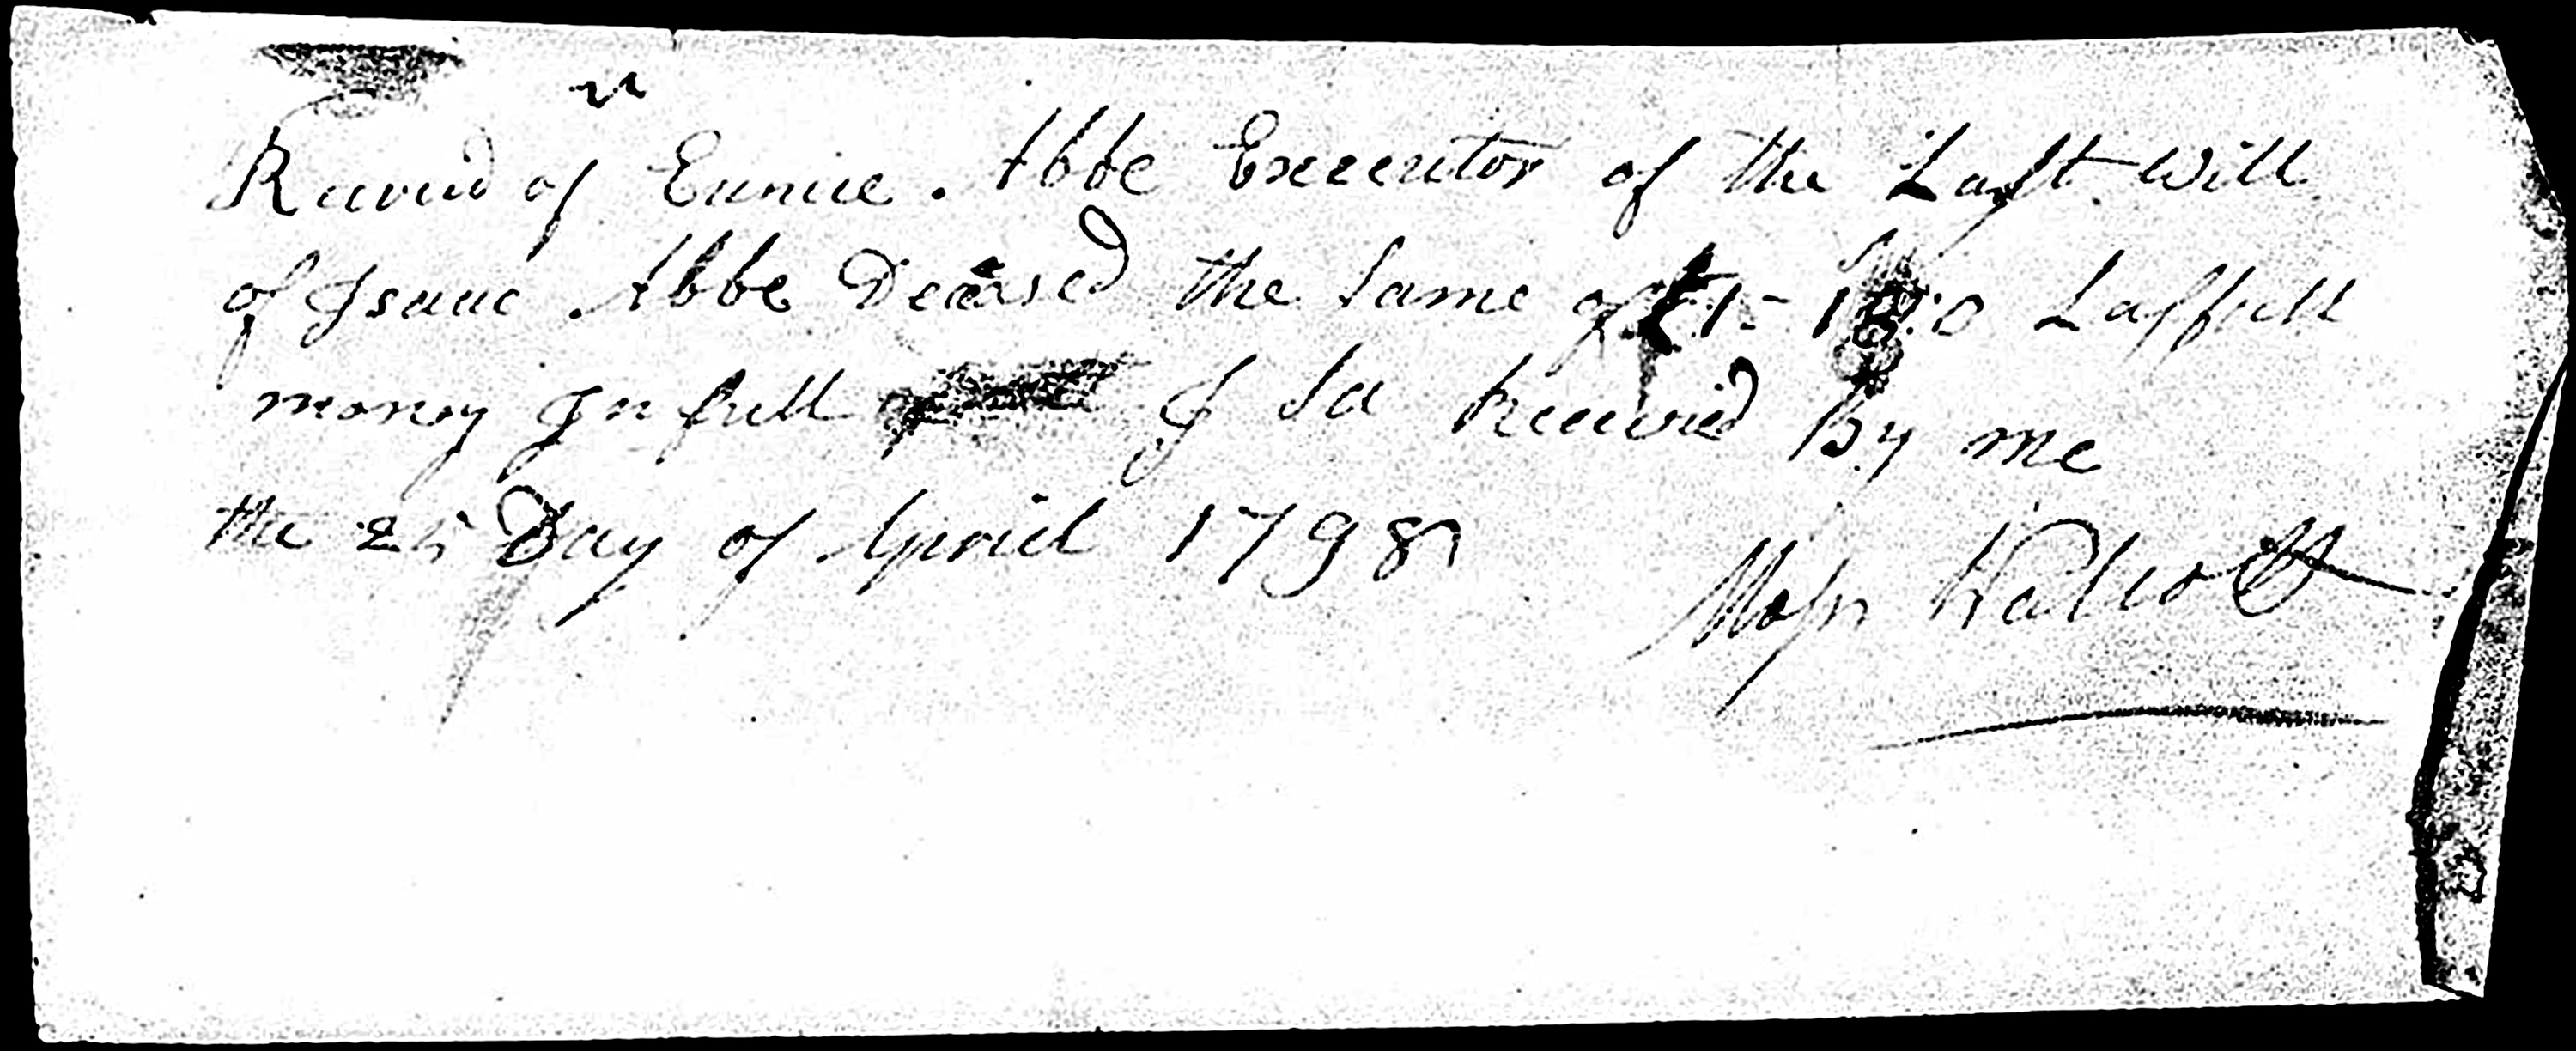 Received of Eunice Abbe Executor of the Last Will
of Isaac Abbe Deceased the same of 1 - 1 0 Lawfull
money In full I Sa Received By me
the 25 Day of April 1798
Moses